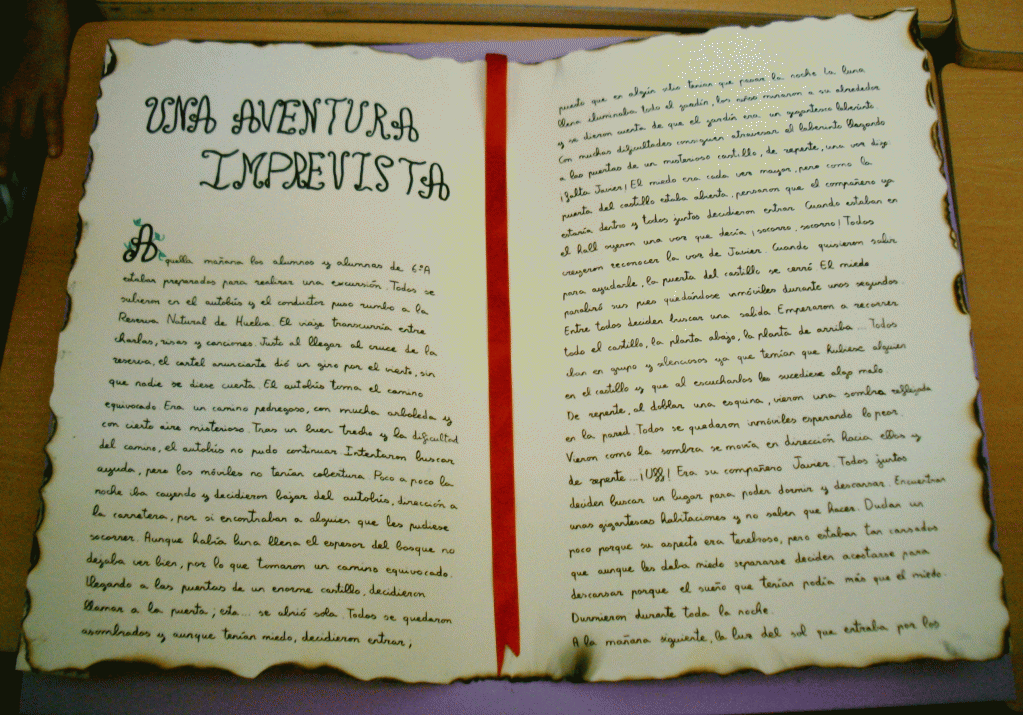 UNA AVENTURA
IMPREVISTA
Aquella mañana los alumnos y alumnas de 6ºA
estaban preparados para realizar una excursión. Todos se
subieron en el autobús y el conductor puso rumbo a la
Reserva Natural de Huelva. El viaje transcurría entre
charlas, risas y canciones. Justo al llegar al cruce de la
reserva, el cartel anunciante dió un giro por el viento, sin
que nadie se diese cuenta. El autobús toma el camino
equivocado. Era un camino pedregoso, con mucha arboleda y
con cierto aire misterioso. Tras un buen trecho y la dificultad
del camino, el autobús no pudo continuar. Intentaron buscar
ayuda, pero los móviles no tenían cobertura. Poco a poco la
noche iba cayendo y decidieron bajar del autobús, dirección a
la carretera, por si encontraban a alguien que les pudiese
socorrer. Aunque había luna llena el espesor del bosque no
dejaba ver bien, por lo que tomaron un camino equivocado.
Llegando a las puertas de un enorme castillo, decidieron
llamar a la puerta; esta... se abrió sola. Todos se quedaron
asombrados y aunque tenían miedo, decidieron entrar;
puesto que en algún sitio tenían que pasar la noche. La luna
llena iluminaba todo el jardín, los niños miraron a su alrededor
y se dieron cuenta de que el jardín era un gigantesco laberinto.
Con muchas dificultades consiguen atravesar el laberinto llegando
a las puertas de un misterioso castillo, de repente, una voz dijo
¡falta Javier! El miedo era cada vez mayor, pero como la
puerta del castillo estaba abierta, pensaron que el compañero ya
estaría dentro y todos juntos decidieron entrar. Cuando estaban en
el hall oyeron una voz que decía ¡socorro, socorro! Todos
creyeron reconocer la voz de Javier. Cuando quisieron salir
para ayudarle, la puerta del castillo se cerró. El miedo
paralizó sus pies quedándose inmóviles durante unos segundos.
Entre todos deciden buscar una salida. Empezaron a recorrer
todo el castillo, la planta abajo, la planta de arriba... Todos
iban en grupo y silenciosos ya que temían que hubiese alguien
en el castillo y que al escucharlos les sucediese algo malo.
De repente, al doblar una esquina, vieron una sombra reflejada
en la pared. Todos se quedaron inmóviles esperando lo peor.
Vieron como la sombra se movía en dirección hacia ellos y
de repente...¡Uff! Era su compañero Javier. Todos juntos
deciden buscar un lugar para poder dormir y descansar. Encuentran
unas gigantescas habitaciones y no saben que hacer. Dudan un
poco porque su aspecto era tenebroso, pero estaban tan cansados
que aunque les daba miedo separarse deciden acostarse para
descansar porque el sueño que tenían podía más que el miedo.
Durmieron durante toda la noche.
A la mañana siguiente, la luz del sol que entraba por los